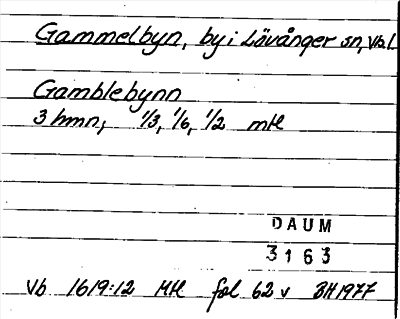 Gammelbyn, by i Lövånger sn, Vbl.
Gamblebynn
3 hmn, 1/3, 1/6, 1/2 mtl
DAUM
3163
Vb 1619:12 Mtl fol 62 v BH 1977